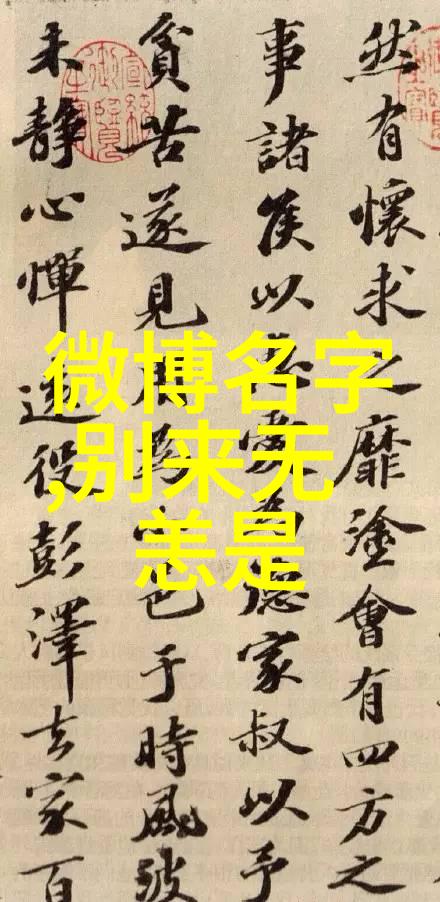 然有懷求之靡塗會有四方之
事諸侯以惠愛為德家叔以予
貧苦遂見用為邑于時風波
未靜心惮遠役彭澤去家百
微博名字
,别来无
恙是